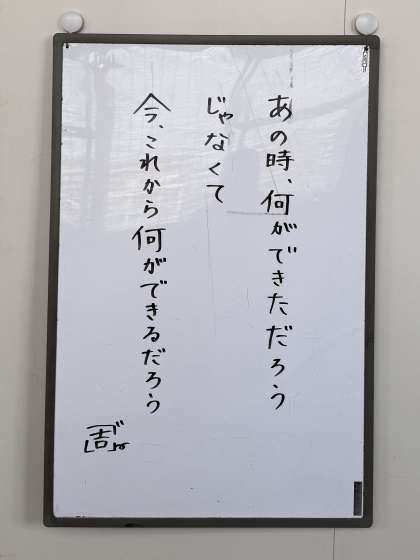 あの時、何ができただろう
じゃなくて
今、これから何ができるだろう